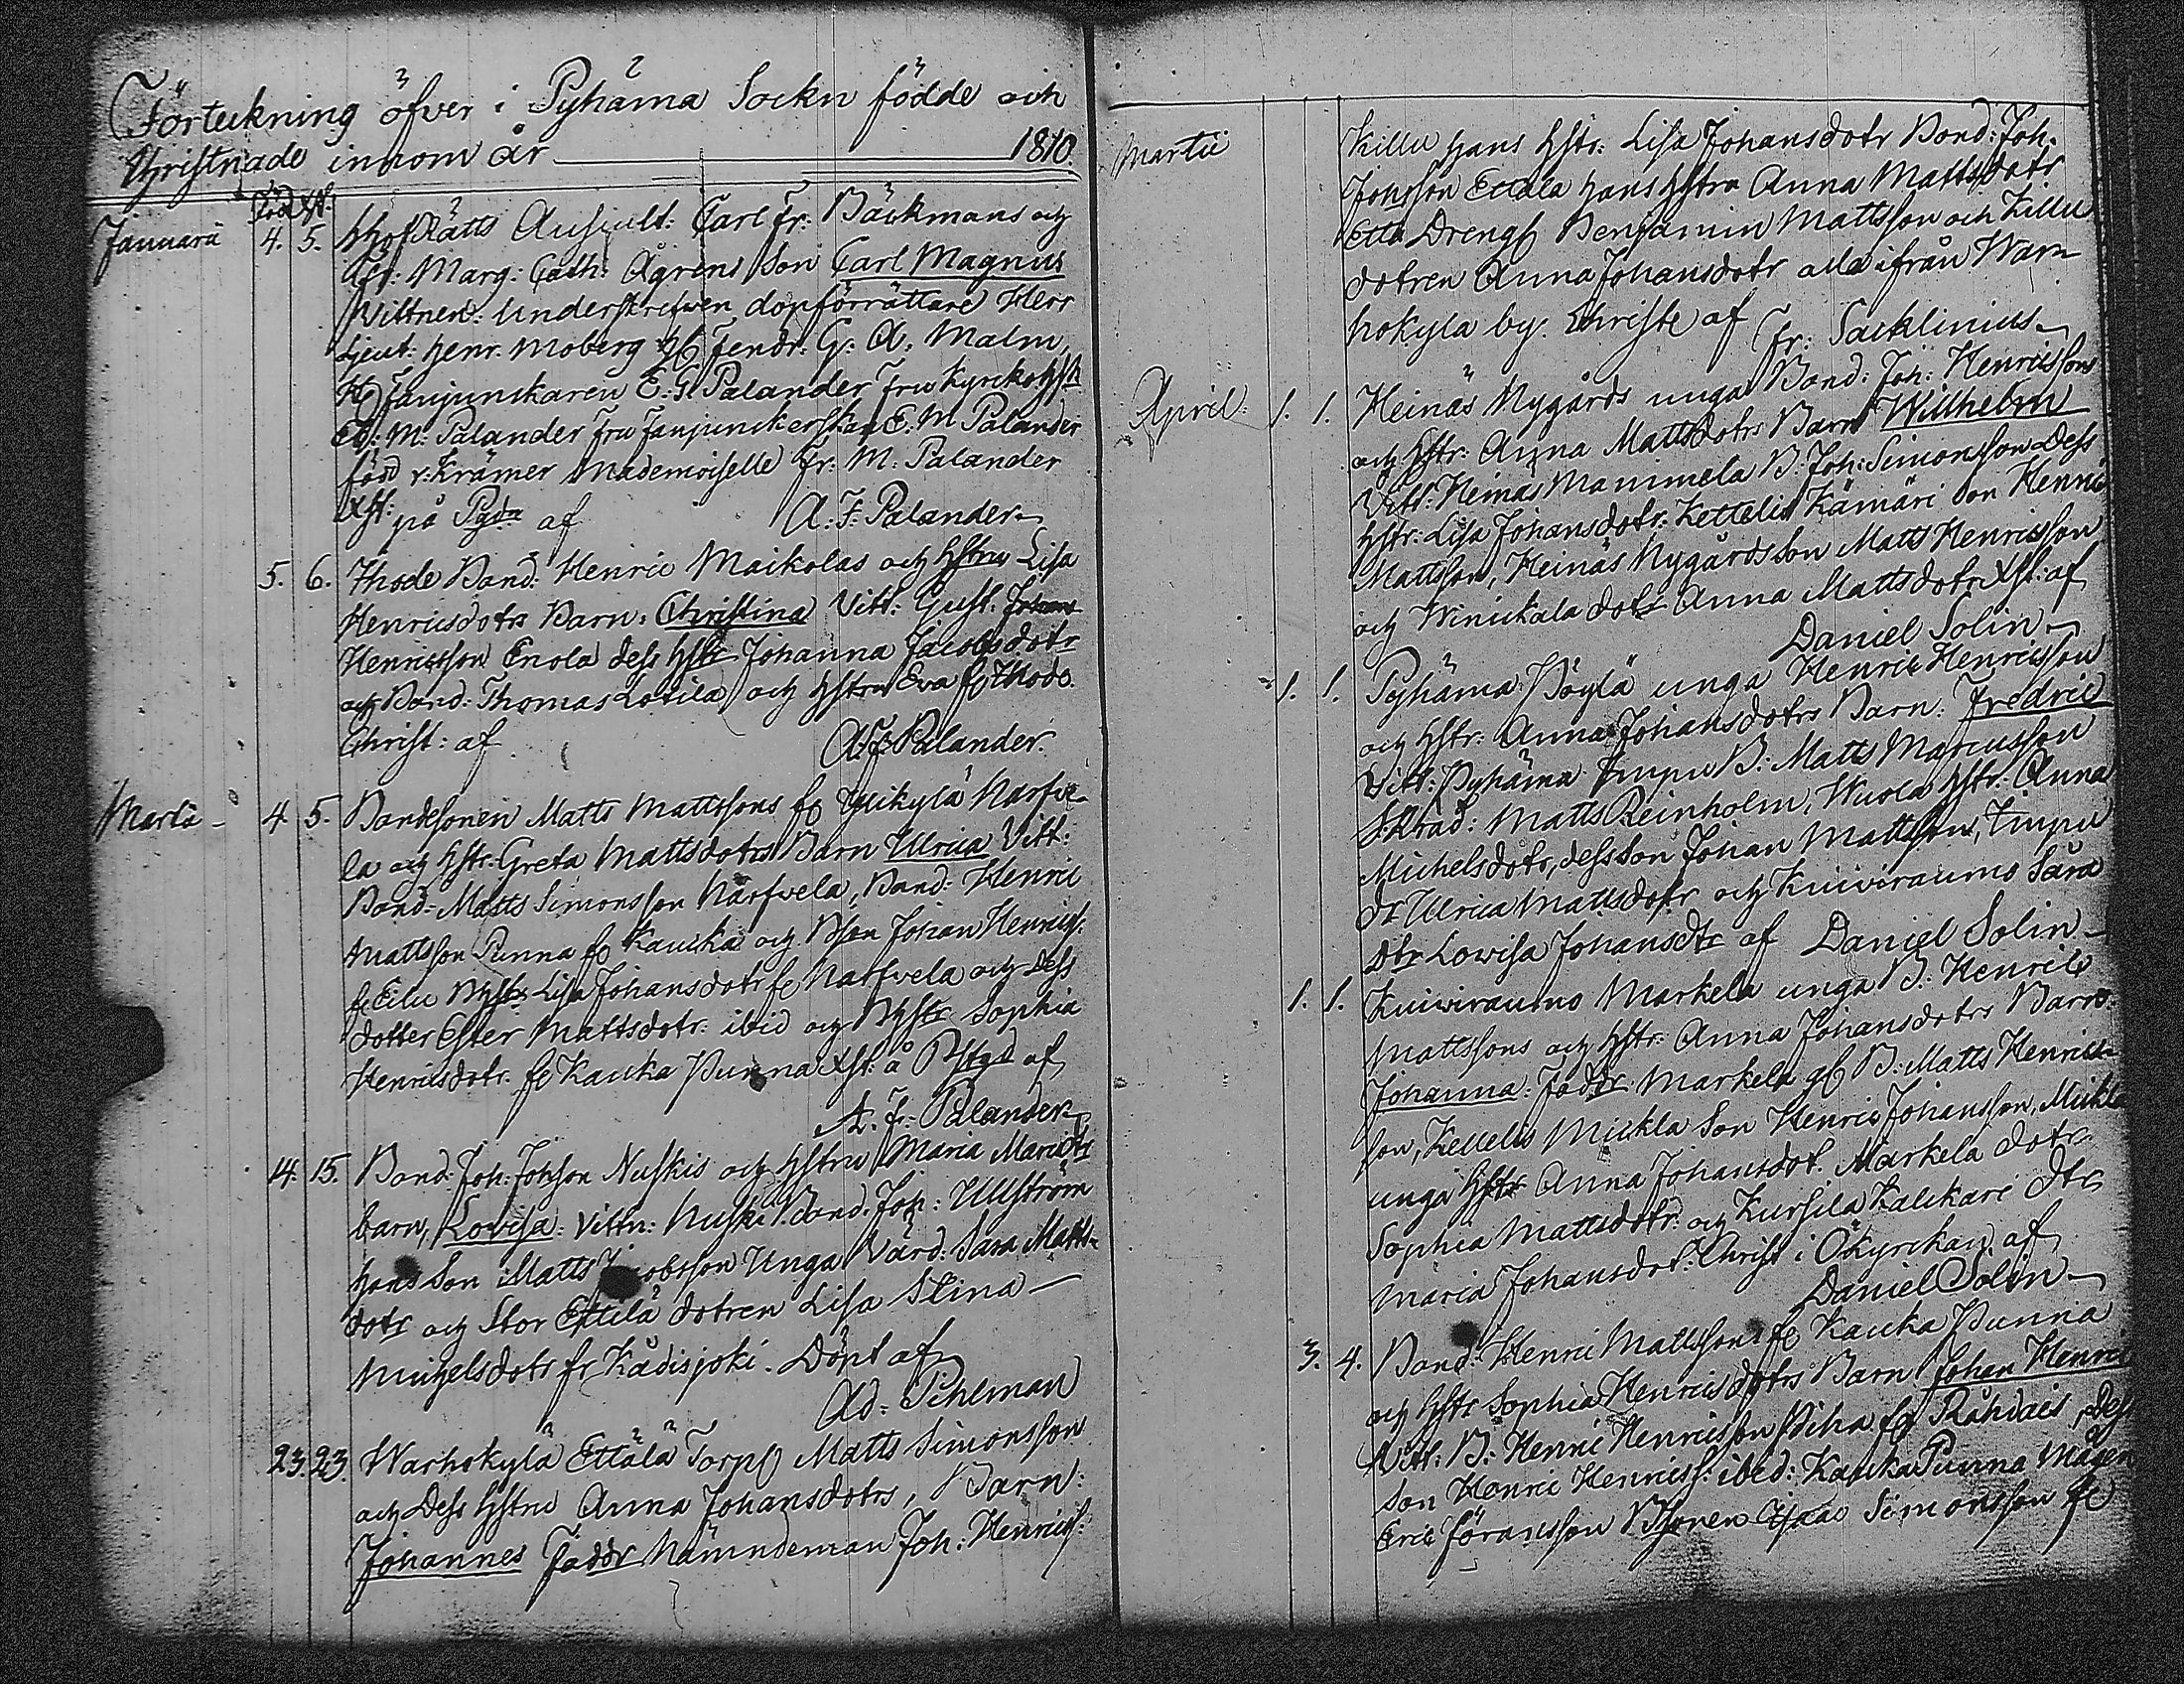 Förteckning öfver i Pyhäma Sockn födde och
Christnade innom år 1810.
Föd Xst.
Januarii 4. 5. HofRätts Auscult: Carl Fr: Bäckmans och
Marg: Cath: Ågrens Son Carl Magnus
Vittnen: Underskrefwen dopförrättare Herr
Lieut: Henr. Moberg H Fendr: G. A. Malm,
H Fanjunkaren E. G. Palander Fru Kyrckoh
M: Palander Fru Fanjunckerskan E. M Palander
född v. Krämer Mademoiselle Fr: M: Palander
Xst: på af A. F. Palander
5. 6. Ihode Bond: Henric Maikolas och Hstru Lisa
Henricsdotrs Barn: Christina Vitt: Gust: Johans
Henricsson Enola dess Hstr Johanna Jacobsdotr
och Bond: Thomas Lotila och Hstrun Eva fr Ihode.
Christ: af A. F. Palander.
Martii 4 5. Bondesonen Matts Mattssons fr Ylikylä Narfve-
la och Hstr: Greta Mattsdotrs Barn Ulrica Vitt:
Bond: Matts Simonsson Närfvela, Bond: Henric
Mattsson Punna fr Kaucka och BSon Johan Henricss:
fr Eilu BHstr Lisa Johansdotr fr Narfvela och Dess
dotter Ester Mattsdotr: ibid och BHstr Sophia
Henricsdotr. fr Kaucka Punna Xst. å af
A. F. Palander
14. 15. Bond: Joh: Johsson Nuskis och Hstru Maria
barn, Lovisa: Vittn: Nuski Bond. Joh: Ullström
hans Son Matts Unga Värd: Sara Matts-
dotr och Stor Ettilä dotren Lisa Stina
Michelsdotr fr Kådisjoki. Döpt af
Ad: Pihlman
23. 23. Warhokylä Ettälä Torp Matts Simonsson
och Dess Hstru Anna Johansdotrs, Barn:
Johannes Faddr Nämndeman Joh: Henricss:
Martii Killu hans Hstr: Lisa Johansdotr Bond: Joh.
Johsson Ettala hans Hstru Anna Mattsdotr
Etta Dreng Benjamin Mattsson och Killu
dotren Anna Johansdotr alla ifrån War-
hokyla by. Christe af Fr: Sacklinius
April: 1. 1. Heinäs Nygårds unga Bond: Joh: Henricssons
och Hstr: Anna Mattsdotrs Barn Wilhelm
Vitt: Heinäs Mannela B: Joh: Simonsson Dess
Hstr: Lisa Johansdotr: Kettelis Kämäri Son Henric
Mattsson, Heinäs Nygårds Son Matts Henricsson
och Winickala dotr Anna Mattsdotr Xst: af
Daniel Solin
1. 1. Pyhäma Pöylä unga Henric Henricsson
och Hstr: Anna Johansdotrs Barn: Fredric
Vitt: Pyhäma B: Matts Marcusson
Matts Reinholm, Wuola Hstr: Anna
Michelsdotr, dess Son Johan Mattsson,
dr Ulrica Mattsdotr och Kuiviraumo Sara
Dtr Lowisa Johansdtr af Daniel Solin
1. 1. Kuiviraumo Markela unga B: Henric
Mattssons och Hstr: Anna Johansdotrs Barn
Johanna: Faddr: Markela gl B: Matts Henrics-
son, Kettelis Mickla Son Henric Johansson, Mickla
unga Hstr Anna Johansdot. Markela dotr
Sophia Mattsdotr: och Kursila Kalckari Dtr
Maria Johansdot: Christ i Ökyrckan af
Daniel Solin
3. 4. Bond: Henric Mattssons fr Kaucka Punna
och Hstr Sophia Henricsdotrs Barn Johan Henric
Vitt: B: Henric Henricsson Piha fr Råhdais, Dess
Son Henric Henricss: ibid: Kaucka Punna Mågen
Eric Jöransson BSonen Isaac Simonsson fr